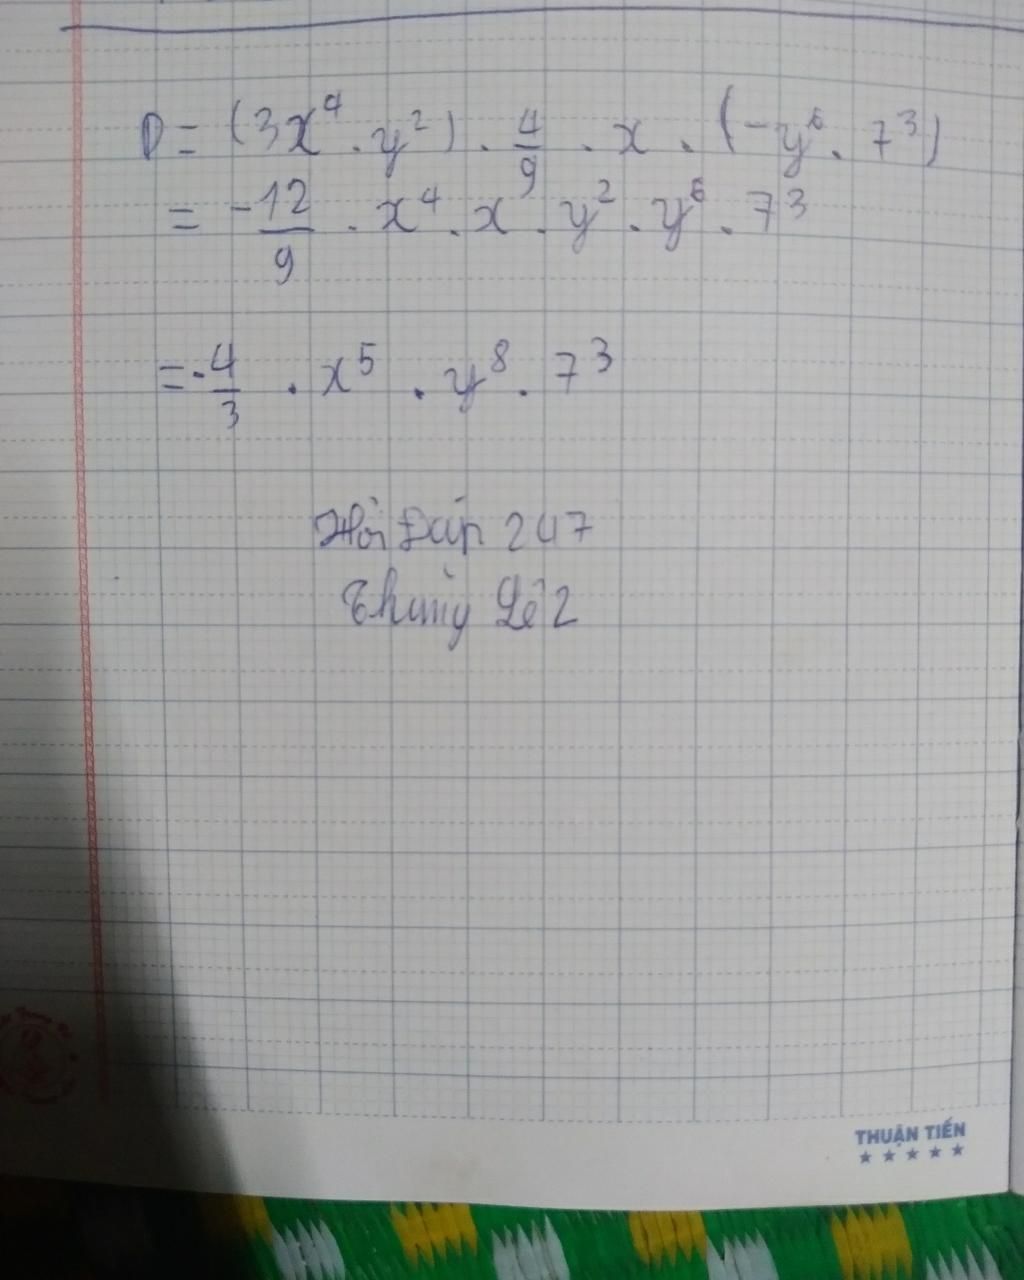 D = (3x⁴ . y²) . 4/9 . x . (-y⁶ . 7³)
= -12/9 . x⁴ . x . y² . y⁶ . 7³
= -4/3 . x⁵ . y⁸ . 7³
Hỏi Đáp 247
Thùy Lê 2
THUẬN TIẾN
★ ★ ★ ★ ★